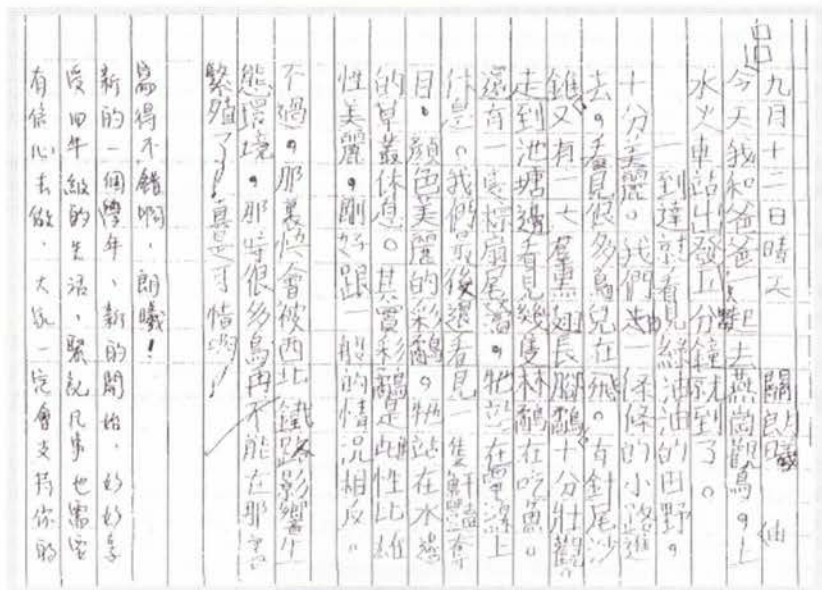 九月十二日晴天 關朗曦
今天我和爸爸一起去燕崗觀鳥,上
水火車站出發五分鐘就到了。
一到達就看見綠油油的田野,
十分美麗。我們由一條條的小路進
去,看見很多鳥兒在飛。有針尾沙
錐,又有一大羣黑翅長腳鷸十分壯觀。
走到池塘邊看見幾隻林鷸在吃魚。
還有一隻棕扇尾鶯,牠站在電線上
休息。我們最後還看見一隻鮮豔奪
目。顏色美麗的彩鷸,牠站在水邊
的草叢休息。其實彩鷸是雌性比雄
性美麗,剛好跟一般的情況相反。
不過,那裏快會被西北鐵路影響生
態環境,那時很多鳥再不能在那裏
繁殖了!真是可惜啊!
寫得不錯啊,朗曦!
新的一個學年、新的開始,好好享
受四年級的生活,緊記凡事也需要
有信心去做,大家一定會支持你的